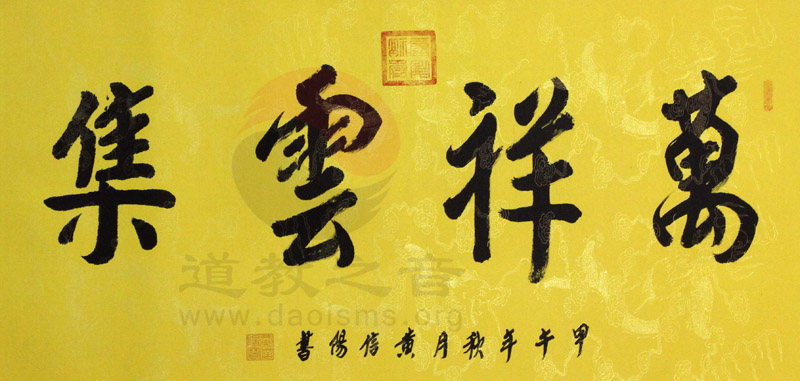 萬祥雲集
甲午年秋月黄信陽書
道教之音
www.daoisms.org